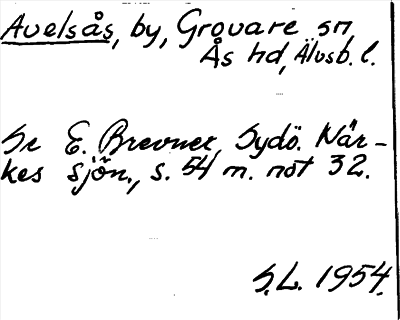 Avelsås, by, Grovare sn,
Ås hd, Älvsb. l.
Se E. Brevner, Sydö. När-
kes sjön., s. 54 m. not 32.
S.L. 1954.